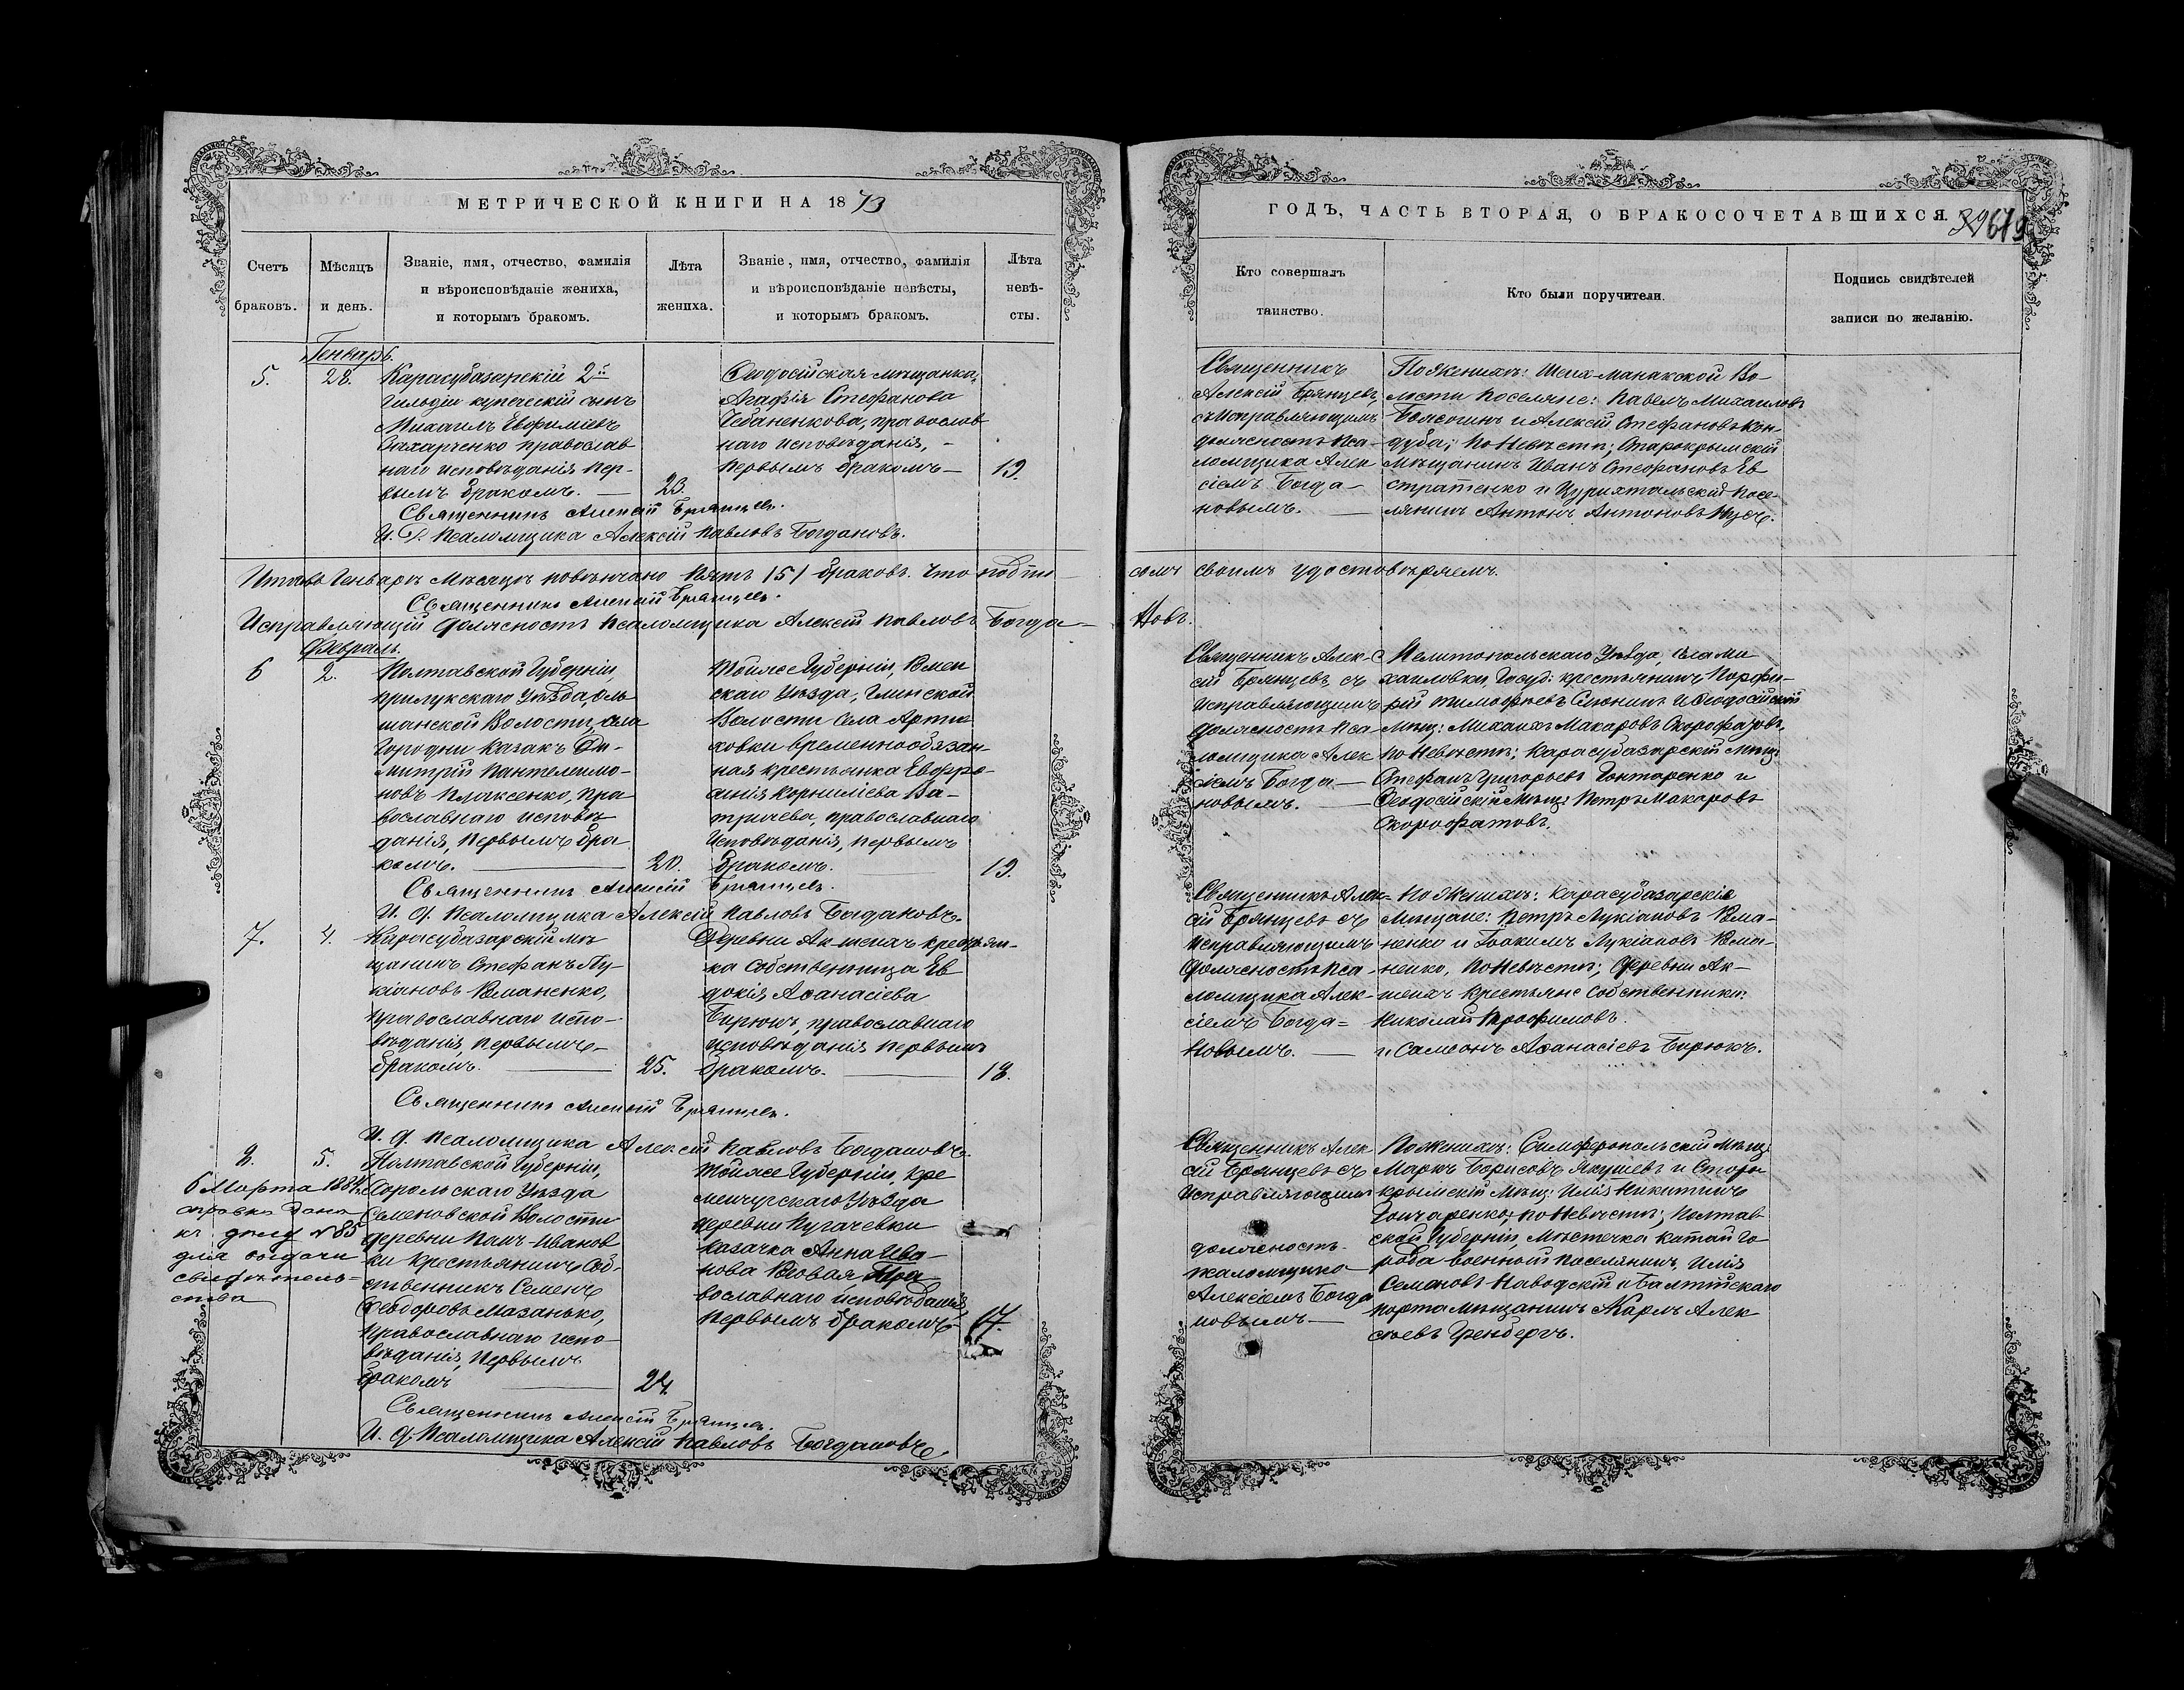 МЕТРИЧЕСКОЙ КНИГИ НА 1873
Счетъ браковъ.
Мѣсяцъ и день.
Званіе, имя, отчество, фамилія
и вѣроисповѣданіе жениха,
и которымъ бракомъ.
Лѣта жениха.
Званіе, имя, отчество, фамилія
и вѣроисповѣданіе невѣсты,
и которымъ бракомъ.
Лѣта невѣ-
сты.
Генварь.
5.
28.
Карасубазарскій 2й
Гильдіи купеческій сынъ
Михаилъ Евфиміевъ
Захарченко православ
наго исповѣданія пер-
вымъ бракомъ.
23.
Феодосійская мѣщанка,
Агафія Стефанова
Чебаненкова, православ
наго исповѣданія,
первымъ бракомъ
19.
Священникъ Алексій Брянцевъ.
И. Д. Псаломщика Алексій Павловъ Богдановъ.
Итого въ Генварѣ Мѣсяцѣ повѣнчано пять /5/ браковъ. Что подпи-
Священникъ Алексій Брянцевъ.
Исправляющій должность Псаломщика Алексій Павловъ Богда-
Февраль.
6
2.
Полтавской Губерніи,
Прилукскаго Уѣзда, Оль
шанской Волости, села
Городни казакъ Ди-
митрій Пантелеимо-
новъ Плаксенко, пра
вославнаго исповѣ
данія, первымъ бра
комъ.
20.
Тойже Губерніи, Ромен
скаго Уѣзда, Глинской
Волости села Артю
ховки временнообязан-
ная крестьянка Евфро-
синія Корниліева Ва-
тричева, православнаго
исповѣданія, первымъ
бракомъ.
19.
Священникъ Алексій Брянцевъ.
И. Д. Псаломщика Алексій Павловъ Богдановъ.
7.
4.
Карасубазарскій мѣ
щанинъ Стефанъ Лу-
кіановъ Романенко,
православнаго испо-
вѣданія, первымъ
бракомъ.
25.
Деревни Ак-шеихъ крестьян-
ка собственница Ев
докія Аѳанасіева
Бирюкъ, православнаго
исповѣданія первымъ
бракомъ.
18.
Священникъ Алексій Брянцевъ.
И. Д. Псаломщика Алексій Павловъ Богдановъ.
8.
5.
Полтавской Губерніи,
Хорольскаго Уѣзда
Семеновской Волости
деревни Паис-Иванов
ки крестьянинъ соб-
ственникъ Семенъ
Феодоровъ Мазанько,
православнаго испо-
вѣданія, первымъ
бракомъ
24.
Тойже Губерніи, Кре
менчугскаго Уѣзда
деревни Пугачевки
казачка Анна Ива-
нова Роговая, пра
вославнаго исповѣданія,
первымъ бракомъ
17.
6 Марта 1884 г.
справка дана
къ делу №85
для выдачи
свидѣтель-
ства
Священникъ Алексій Брянцевъ.
И. Д. Псаломщика Алексій Павловъ Богдановъ.
ГОДЪ, ЧАСТЬ ВТОРАЯ, О БРАКОСОЧЕТАВШИХСЯ.
Кто совершалъ
таинство.
Кто были поручители.
Подпись свидѣтелей
записи по желанію.
Священникъ
Алексій Брянцевъ,
съ исправляющимъ
должность Пса-
ломщика Алек
сіемъ Богда-
новымъ.
По женихѣ: Шеих-Манакской Во-
лости поселяне: Павелъ Михаиловъ
и Алексій Стефановъ Кон-
дуба; по невѣстѣ; Старокрымскій
Мѣщанинъ Иванъ Стефановъ Ев
стратенко и Цурихтальскій посе-
лянинъ Антонъ Антоновъ
семъ своимъ удостовѣряемъ.
новъ.
Священникъ Алек-
сій Брянцевъ съ
исправляющимъ
должность Пса-
ломщика Алек
сіемъ Богда-
новымъ.
Мелитопольскаго Уѣзда, села Ми
хаиловки, Госуд: крестьянинъ Порфи-
рій Тимофеевъ и Феодосійскій
Мѣщ: Михаилъ Макаровъ Скорофатовъ,
по невѣстѣ; Карасубазарскій Мѣщ:
Стефанъ Григорьевъ Гонтаренко и
Феодосійскій Мѣщ: Петръ Макаровъ
Скорофатовъ.
Священникъ Алек=
сій Брянцевъ съ
исправляющимъ
должность Пса-
ломщика Алек-
сіемъ Богда=
новымъ.
По женихѣ: Карасубазарскіе
Мѣщане: Петръ Лукіановъ Рома-
ненко и Іоакимъ Лукіановъ Рома-
ненко, по невѣстѣ; деревни Ак-
шеихъ крестьяне собственники:
Николай Трофимовъ
и Самсонъ Аѳанасіевъ Бирюкъ.
Священникъ Алек
сій Брянцевъ съ
исправляющимъ
должность
псаломщика
Алексіемъ Богда
новымъ
По женихѣ: Симферопольскій Мѣщ:
Маркъ Борисовъ Якушевъ и Старо
крымскій Мѣщ: Илія Никитинъ
Гончаренко; по невѣстѣ; Полтав-
ской Губерніи, Мѣстечка Китай го
рода военный поселянинъ, Илія
Семеновъ Наводскій и Балтійскаго
порта Мѣщанинъ Карлъ Алек
сѣевъ Гренбергъ.